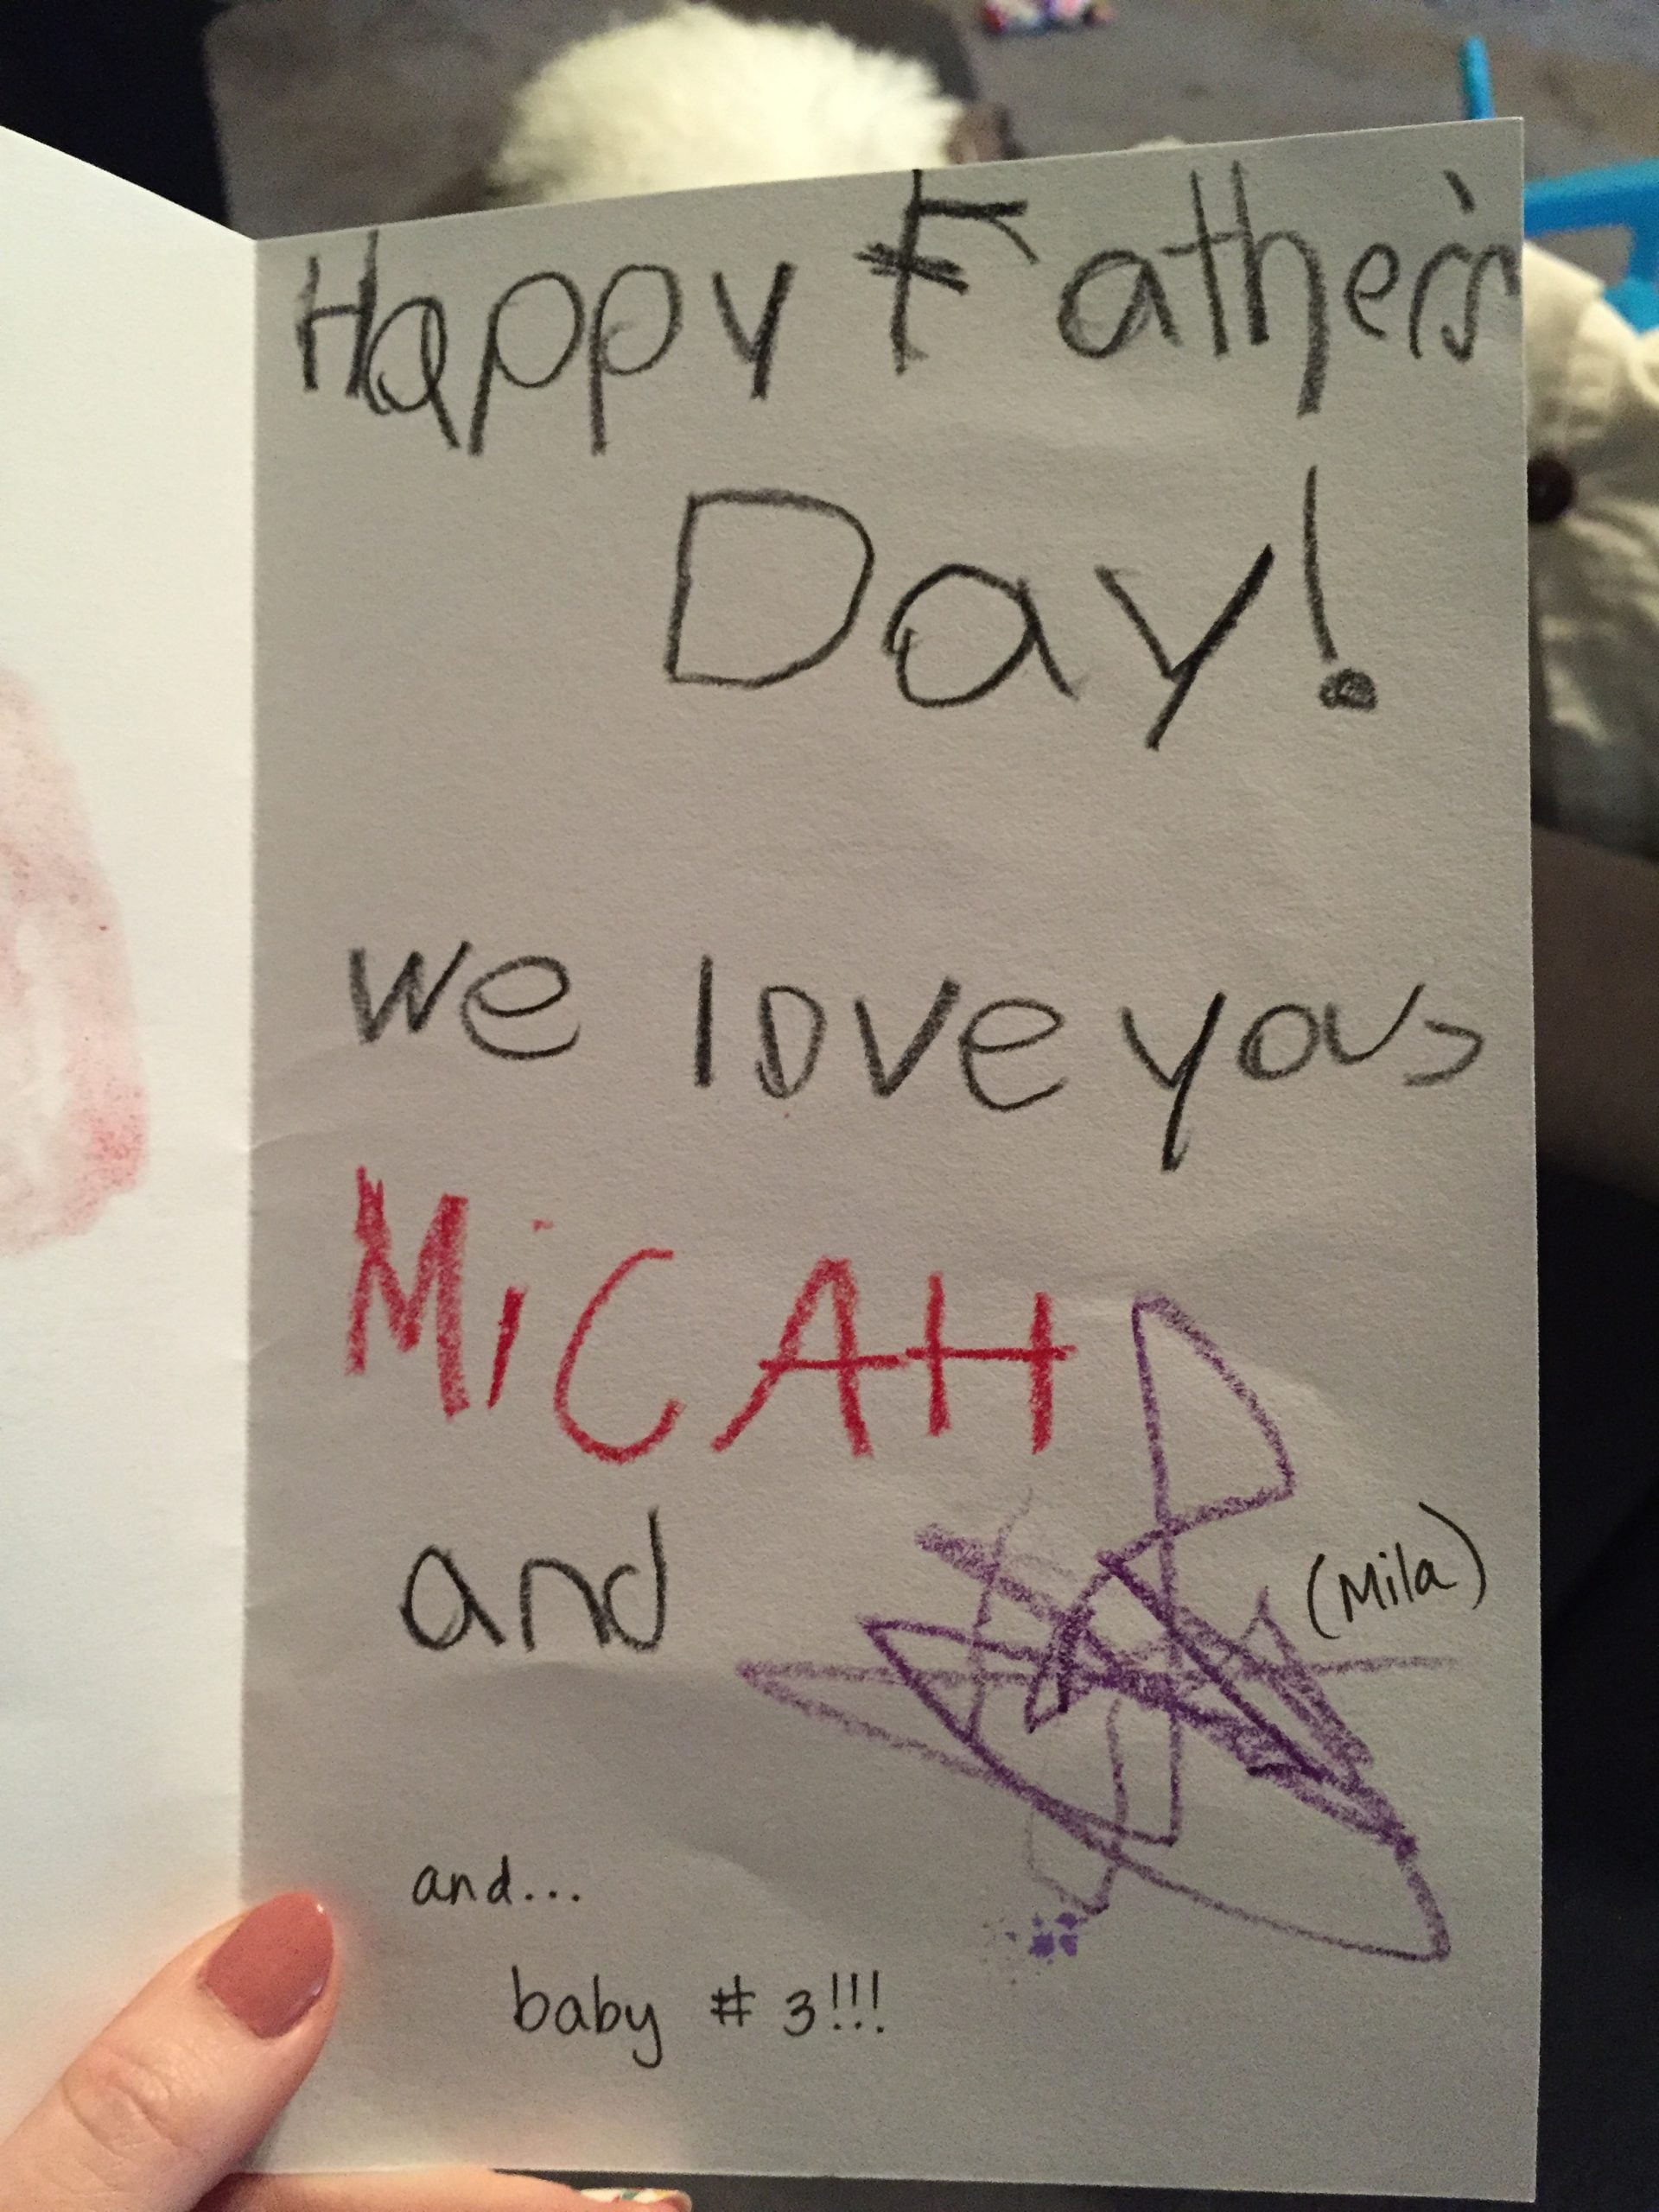 Happy Father's
Day!
we love you,
MiCAH
and
(Mila)
and...
baby # 3!!!